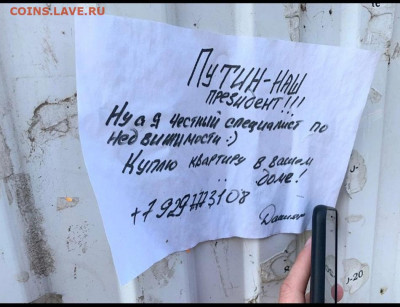 COINS.LAVE.RU
ПУТИН-НАШ
ПРЕSIDENT!!!
Ну а я честный специалист по
недвижимости :)
Куплю квартиру в вашем
доме!
+7 929 777 31 08
J-20